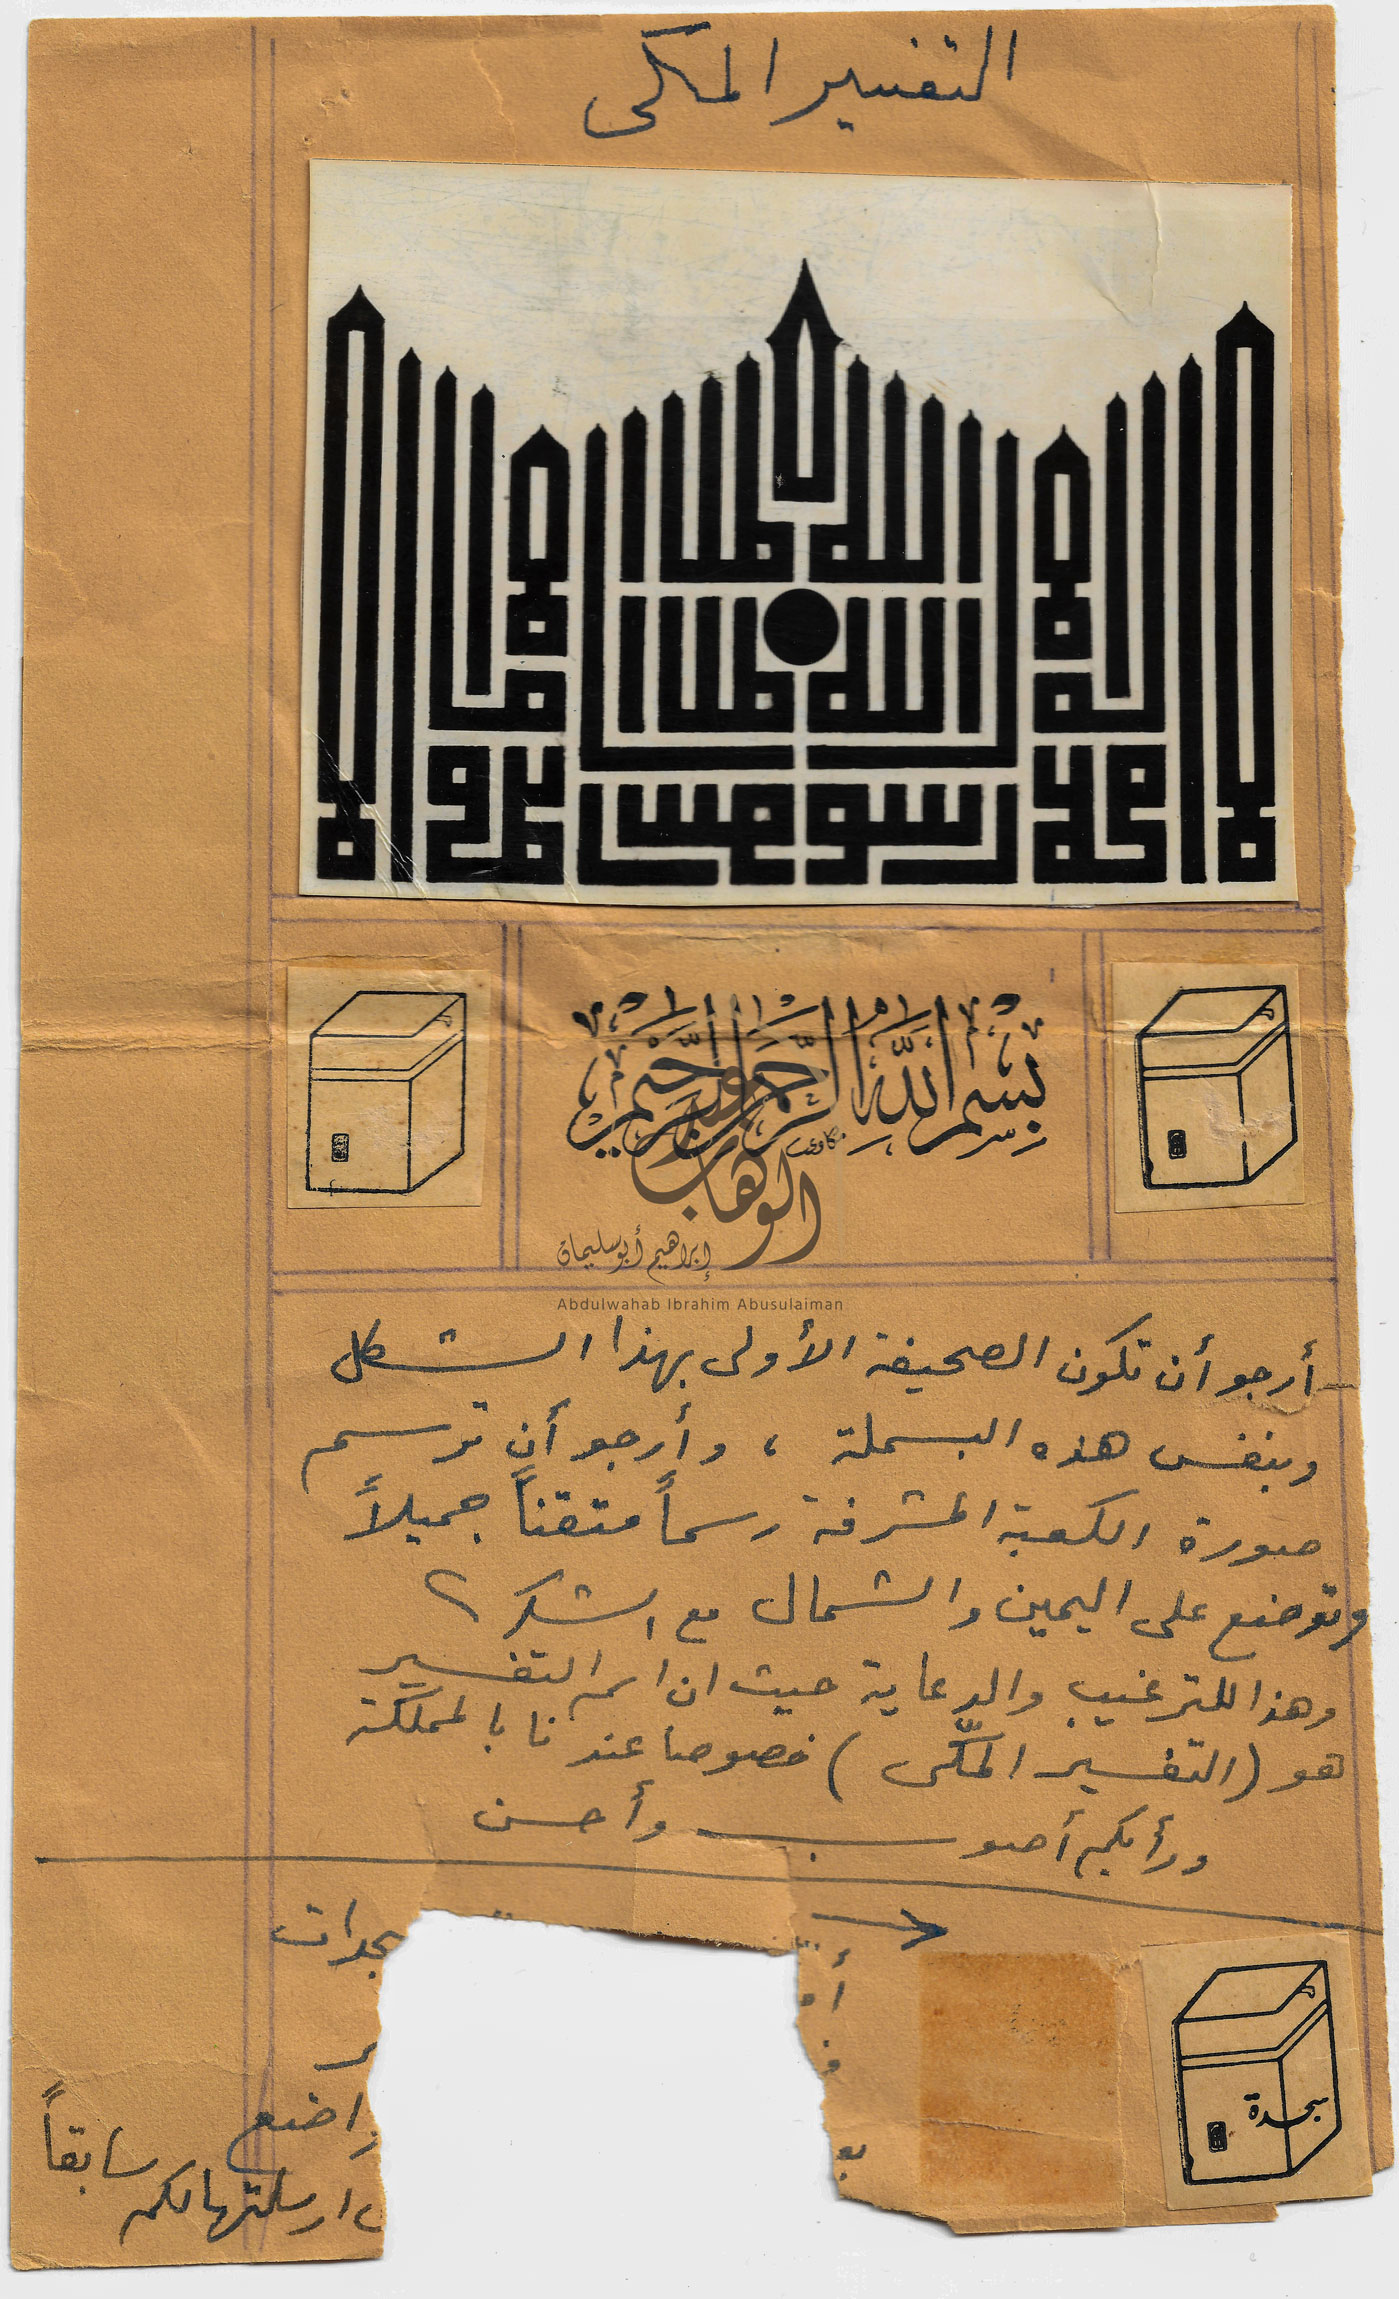 التفسير المكى
لا اله الا الله محمد رسول الله
بسم الله الرحمن الرحيم
مكاوى
عبد الوهاب
إبراهيم أبوسليمان
Abdulwahab Ibrahim Abusulaiman
أرجو أن تكون الصحيفة الأولى بهذا الشكل
وبنفس هذه البسملة ، وأرجو أن ترسم
صورة الكعبة المشرفة رسماً متقناً جميلاً
وتوضع على اليمين والشمال مع الشكر
وهذا للترغيب والدعاية حيث ان اسم التفسير
هو (التفسير المكّى) خصوصا عندنا بالمملكة
ورأيكم أصوب وأحسن
سجدة
اضع
سابقاً
ارسلتها لكم